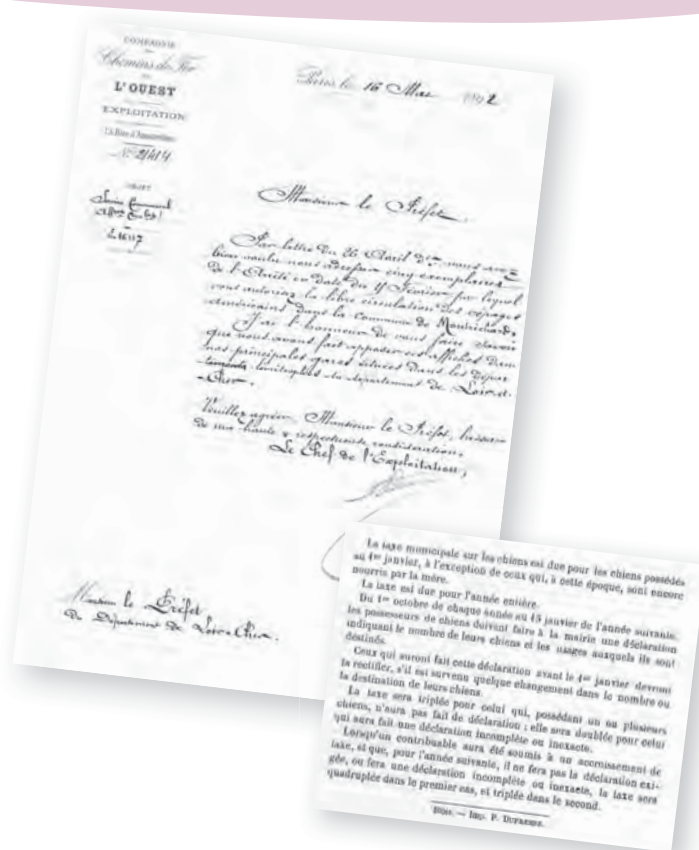 COMPAGNIE
DES
Chemins de Fer
DE
L'OUEST
EXPLOITATION
N° 21414
OBJET
Paris le 16 Mai 1892
Monsieur le Préfet,
Par lettre du 26 Avril der vous avez
bien voulu nous adresser cinq exemplaires
de l'Arrêté en date du 15 Février par lequel
vous autorisez la libre circulation des cépages
Américains dans la Commune de Montrichard.
J'ai l'honneur de vous faire savoir
que nous avons fait apposer ces affiches dans
nos principales gares situées dans les dépar
-tements limitrophes du département de Loir-et-
-Cher.
Veuillez agréer, Monsieur le Préfet, l'assurance
de ma haute & respectueuse considération,
Le Chef de l'Exploitation,
Monsieur le Préfet
du Département de Loir & Cher.
La taxe municipale sur les chiens est due pour les chiens possédés
au 1er janvier, à l'exception de ceux qui, à cette époque, sont encore
nourris par la mère.
La taxe est due pour l'année entière.
Du 1er octobre de chaque année au 15 janvier de l'année suivante,
les possesseurs de chiens doivent faire à la mairie une déclaration
indiquant le nombre de leurs chiens et les usages auxquels ils sont
destinés.
Ceux qui auront fait cette déclaration avant le 1er janvier devront
la rectifier, s'il est survenu quelque changement dans le nombre ou
la destination de leurs chiens.
La taxe sera triplée pour celui qui, possédant un ou plusieurs
chiens, n'aura pas fait de déclaration ; elle sera doublée pour celui
qui aura fait une déclaration incomplète ou inexacte.
Lorsqu'un contribuable aura été soumis à un accroissement de
taxe, et que, pour l'année suivante, il ne fera pas la déclaration exi-
gée, ou fera une déclaration incomplète ou inexacte, la taxe sera
quadruplée dans le premier cas, et triplée dans le second.
Blois. — Imp. P. DUFRESNE.